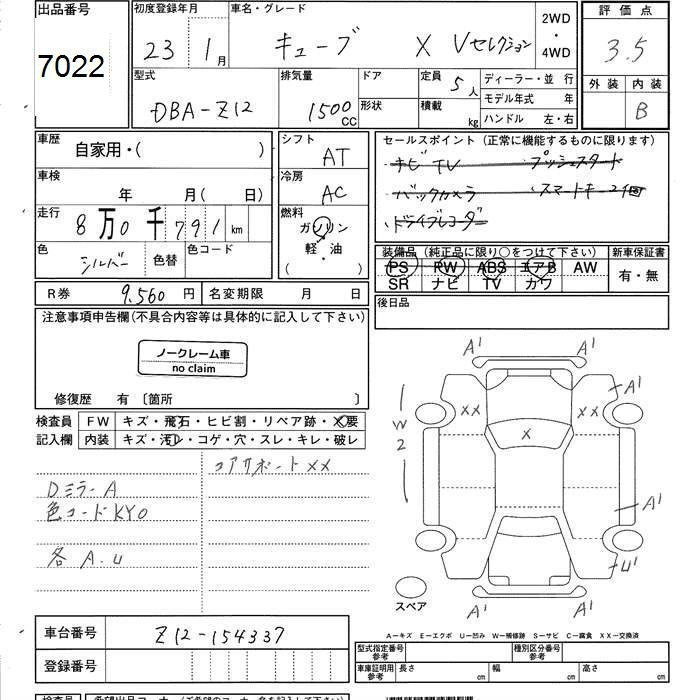 出品番号 初度登録年月 車名・グレード 2WD・4WD 評価点
7022 23 1月 キューブ X Vセレクション 3.5
型式 排気量 ドア 定員 5人 ディーラー・並 行 外装 内装
DBA-Z12 1500cc 形状 積載 kg モデル年式 年 B
ハンドル 左・右
車歴 自家用・( ) シフト AT セールスポイント(正常に機能するものに限ります)
車検 年 月( 日) 冷房 AC ナビ TV プッシュスタート
バックカメラ スマートキー2個
走行 8万0千791km 燃料 ガソリン 軽・油 ( ) ドライブレコーダー
色 シルバー 色替 色コード 装備品(純正品に限り○をつけて下さい) 新車保証書
PS PW ABS エアB AW 有・無
SR ナビ TV カワ
R券 9.560円 名変期限 月 日 後日品
注意事項申告欄(不具合内容等は具体的に記入して下さい)
ノークレーム車
no claim
修復歴 有 [箇所 ]
検査員 FW キズ・飛石・ヒビ割・リペア跡・X要
記入欄 内装 キズ・汚レ・コゲ・穴・スレ・キレ・破レ
コアサポートXX
DミラーA
色コードKY0
各 A.U
A' A'
A'
XX XX
W2
X
A'
U'
A' A'
スペア
A-キズ E-エクボ U-凹み W-補修跡 S-サビ C-腐食 XX-交換済
車台番号 Z12-154337
登録番号
型式指定番号 参考 種別区分番号 参考
車庫証明用 参考 長さ cm 幅 cm 高さ cm